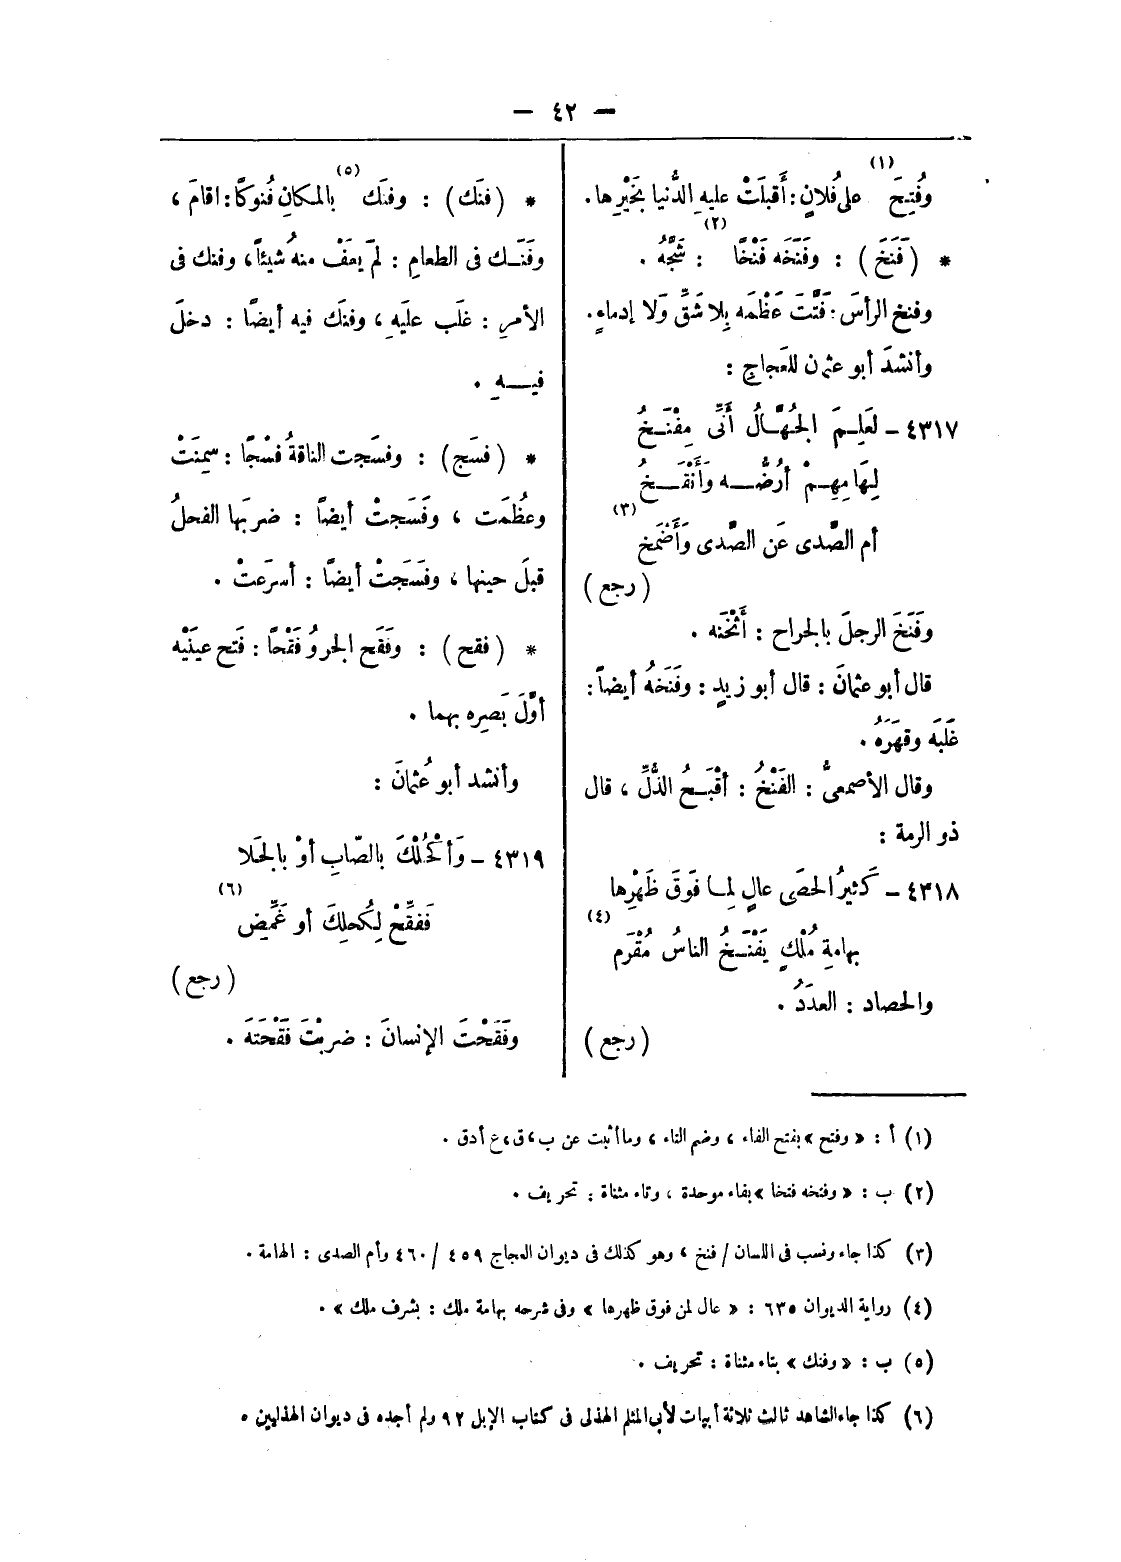 — ٤٢ —
وفُتِحَ (١) على فُلانٍ : أَقبلَتْ عليهِ الدُّنيا بخَيْرِها .
* ( فَنَخَ ) : وفَنَخَه فَنْخًا (٢) : شَجَّهُ .
وفنخ الرأسَ : فَتَّتَ عَظْمَه بِلا شَقٍّ وَلا إدماءٍ .
وأنشدَ أبو عثمن للعَجاجِ :
٤٣١٧ – لَعَلِمَ الجُهَّالُ أَنِّى مِفْنَخُ
لِهَامِهِمْ أَرُضُّه وَأَنْقَخُ
أم الصَّدى عَن الصَّدى وَأَصْمَخ (٣)
( رجع )
وفَنَخَ الرجلَ بالجراح : أَثْخَنَه .
قال أبو عثمانَ : قال أبو زيدٍ : وفَنَخَهُ أيضاً :
غَلَبَه وقهَرَهُ .
وقال الأصمعىُّ : الفَنْخُ : أقْبَحُ الذُّلِّ ، قال
ذو الرمة :
٤٣١٨ – كَثيرُ الحصَى عالٍ لِمَا فَوقَ ظَهْرِها
بهامةِ مُلْكٍ يَفْنَخُ الناسُ مُقْرَم (٤)
والحصاد : العدَدُ .
( رجع )
* ( فنَك ) : وفنَك (٥) بالمكانِ فُنوكًا : اقامَ ،
وفَنَك فى الطعامِ : لمْ يعَفْ منهُ شيئاً ، وفنك فى
الأمرِ : غلَب علَيهِ ، وفنَك فيه أيضًا : دخلَ
فيهِ .
* ( فسَج ) : وفسَجت الناقةُ فسْجًا : سمِنَتْ
وعظُمَت ، وفَسَجتْ أيضاً : ضربَها الفحلُ
قبلَ حينها ، وفَسَجَتْ أيضًا : أسرَعتْ .
* ( فقح ) : وفَقَح الجروُ فَقْحًا : فَتح عينَيْه
أوَّلَ بَصرِه بهما .
وأنشد أبو عُثمانَ :
٤٣١٩ – وَأكْحُلْكَ بالصَّابِ أوْ بالجَلا
فَفقِّحْ لِكُحلِكَ أو غَمِّض (٦)
( رجع )
وفَقَحْتَ الإنسانَ : ضربْتَ فَقْحَتَه .
(١) أ : « وفتح » بفتح الفاء ، وضم التاء ، وما أثبت عن ب ، ق ، ع أدق .
(٢) ب : « وفتخه فتخا » بفاء موحدة ، وتاء مثناة : تحريف .
(٣) كذا جاء ونسب فى اللسان / فنخ ، وهو كذلك فى ديوان العجاج ٤٥٩ / ٤٦٠ وأم الصدى : الهامة .
(٤) رواية الديوان ٦٣٥ : « عال لمن فوق ظهرها » وفى شرحه بهامة ملك : بشرف ملك » .
(٥) ب : « وفتك » بتاء مثناة : تحريف .
(٦) كذا جاء الشاهد ثالث ثلاثة أبيات لأبى المثلم الهذلى فى كتاب الإبل ٩٢ ولم أجده فى ديوان الهذليين .